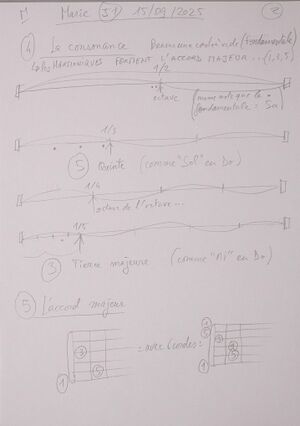 Marie (S1) 15/09/2025 (2)
(4) La consonance Prenons une corde à vide (fondamentale)
Les HARMONIQUES FORMENT L'ACCORD MAJEUR ... (1,3,5)
1/2
octave (même note que la
fondamentale :
1/3
(5) Quinte (comme "Sol" en Do)
1/4
octave de l'octave ...
1/5
(3) Tierce majeure (comme "Mi" en Do)
(5) L'accord majeur
(3)
(1) (5)
= avec 6 cordes =
(1)
(5)
(3)
(1)
(5)
(1)